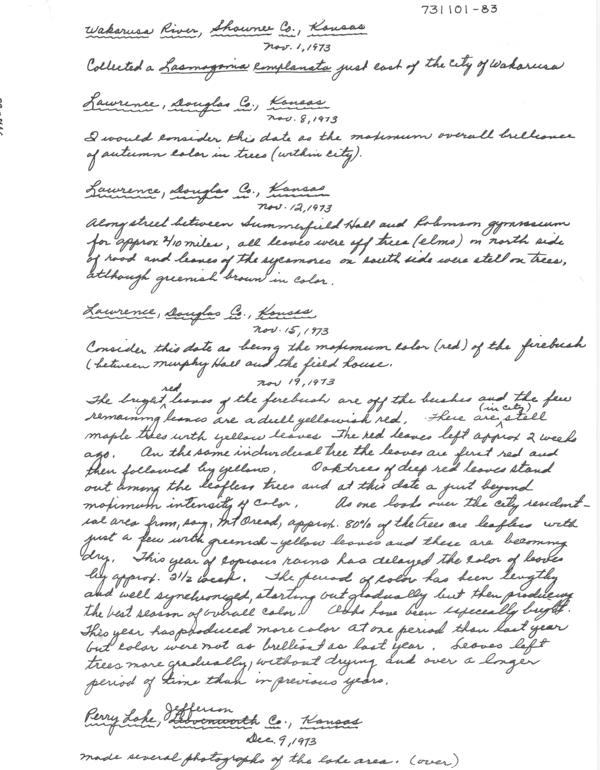 731101-83
Wakarusa River, Shawnee Co., Kansas
Nov. 1, 1973
Collected a Lasmogonia complanata just east of the city of Wakarusa
Lawrence, Douglas Co., Kansas
Nov. 8, 1973
I would consider this date as the maximum overall brilliance
of autumn color in trees (within city).
Lawrence, Douglas Co., Kansas
Nov. 12, 1973
Along street between Summerfield Hall and Robinson gymnasium
for approx 2/10 miles, all leaves were off trees (elms) on north side
of road and leaves of the sycamores on south side were still on trees,
although greenish brown in color.
Lawrence, Douglas Co., Kansas
Nov. 15, 1973
Consider this date as being the maximum color (red) of the firebush
(between Murphy Hall and the field house.
Nov 19, 1973
The bright red leaves of the firebush are off the bushes and the few
remaining leaves are a dull yellowish red. There are (in city) still
maple trees with yellow leaves The red leaves left approx 2 weeks
ago. On the same individual tree the leaves are first red and
then followed by yellow. Oak trees of deep red leaves stand
out among the leafless trees and at this date a just beyond
maximum intensity of color. As one looks over the city resident-
ial area from, say, Mt Oread, approx. 80% of the trees are leafless with
just a few with greenish-yellow leaves and these are becoming
dry. This year of copious rains has delayed the color of leaves
by approx. week. The period of color has been lengthy
and well synchronized, starting out gradually but then producing
the best season of overall color. Oaks have been especially bright.
This year has produced more color at one period than last year
but color were not as brilliant as last year. Leaves left
trees more gradually, without drying and over a longer
period of time than in previous years.
Perry Lake, Jefferson Co., Kansas
Dec. 9, 1973
Made several photographs of the lake area. (over)